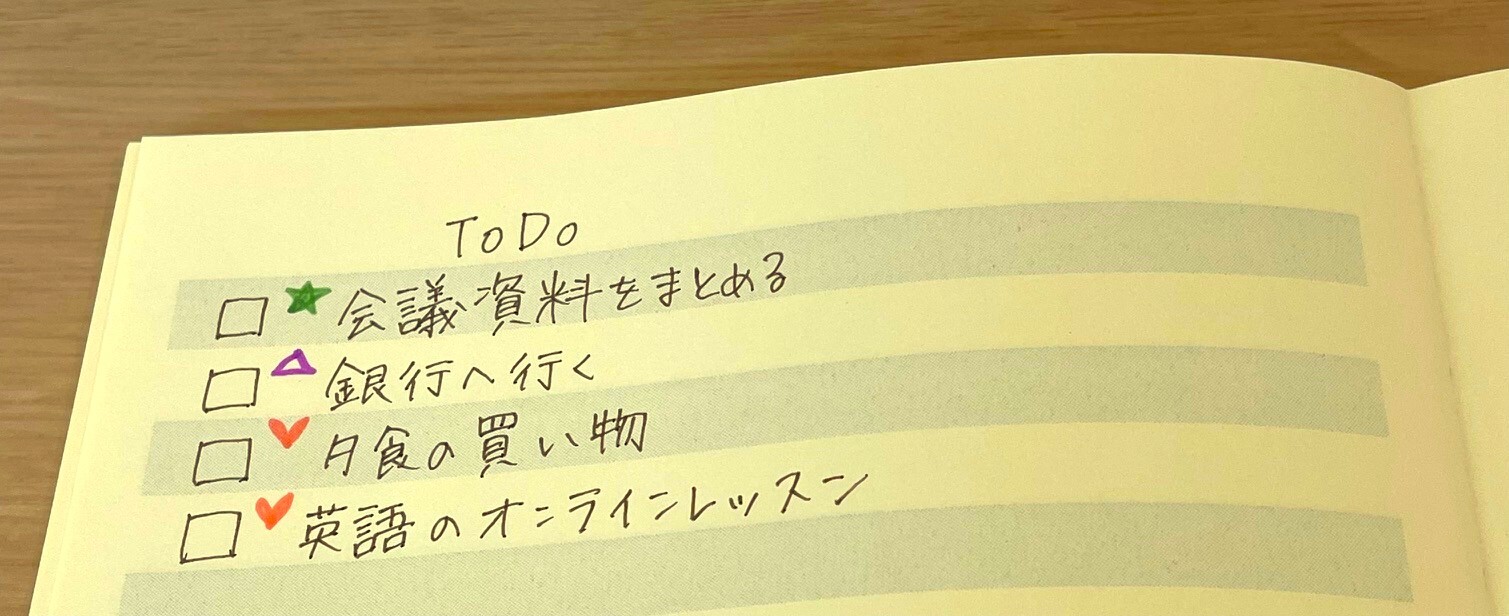 ToDo
□ ★ 会議資料をまとめる
□ △ 銀行へ行く
□ ♥ 夕食の買い物
□ ♥ 英語のオンラインレッスン